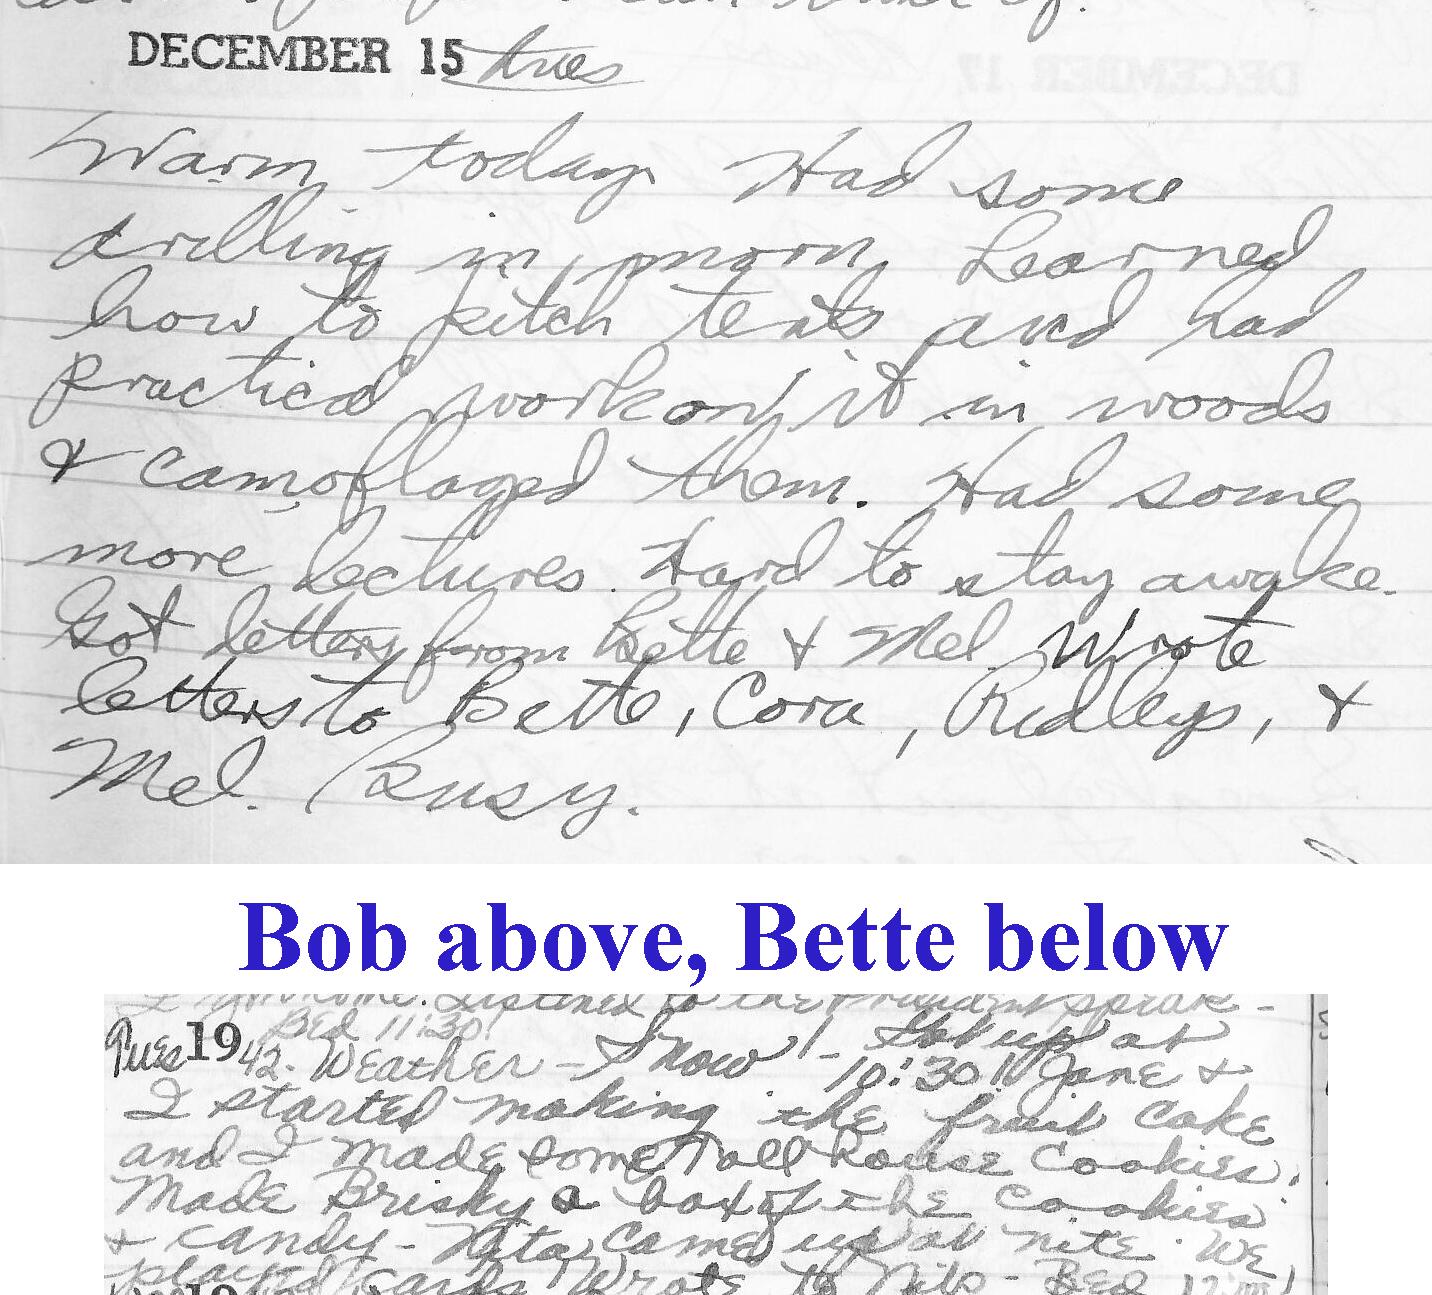 DECEMBER 15 tues
Warm today. Had some
drilling in morn. Learned
how to pitch tents and had
practical work on it in woods
& camoflaged them. Had some
more lectures. Hard to stay awake.
Got letters from Bette & Mel. Wrote
letters to Bette, Cora, Ridleys, &
Mel. Busy.
Bob above, Bette below
Listened to the President speak -
Bed 11:30!
Tues 1942. Weather - Snow! - Got up at
10:30!! Jane &
I started making the fruit cake
and I made some Toll house cookies.
Made Brisky a box of the cookies
& candy - Nita came up at nite. We
played cards. Wrote to - Bed
19